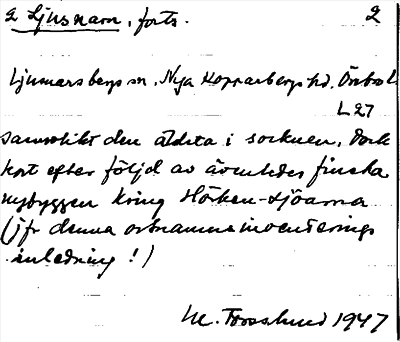 2 Ljusnarn, forts. 2
Ljusnarsbergs sn. Nya Kopparbergs hd. Örebro L
L27
sannolikt den äldsta i socknen. Dock
kort efter följd av ävenledes finska
nybyggen kring Hörken-sjöarna
(jfr denna ortnamnsinventerings
inledning!)
M. Trosslund 1947